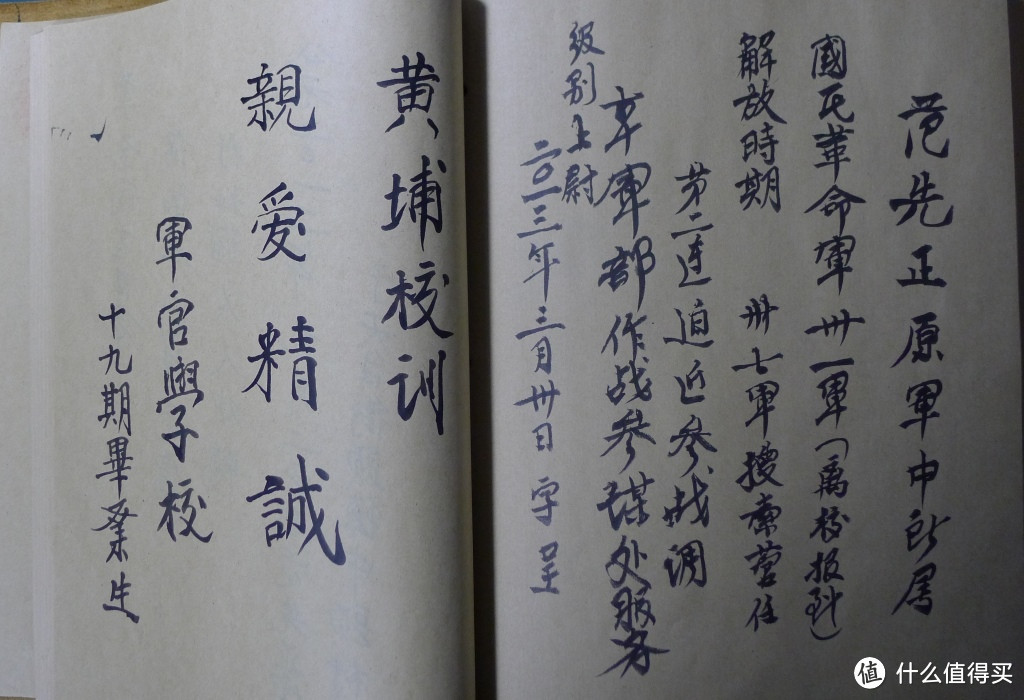 范先正原軍中所属
國民革命軍卅一軍(离校报到)
解放時期 卅七軍搜索营任
第二连迫近参战调
本軍部作战参谋处服务
级别上尉
二〇一三年三月卅日字呈
黄埔校训
親爱精誠
軍官學校
十九期畢業生
值 什么值得买